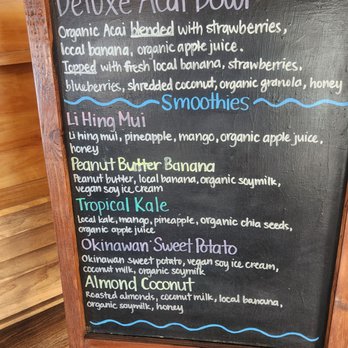 Deluxe Acai Bowl
Organic Acai blended with strawberries,
local banana, organic apple juice.
Topped with fresh local banana, strawberries,
blueberries, shredded coconut, organic granola, honey
Smoothies
Li Hing Mui
Li hing mui, pineapple, mango, organic apple juice,
honey
Peanut Butter Banana
Peanut butter, local banana, organic soymilk,
vegan soy ice cream
Tropical Kale
local kale, mango, pineapple, organic chia seeds,
organic apple juice
Okinawan Sweet Potato
Okinawan sweet potato, vegan soy ice cream,
coconut milk, organic soymilk
Almond Coconut
Roasted almonds, coconut milk, local banana,
organic soymilk, honey